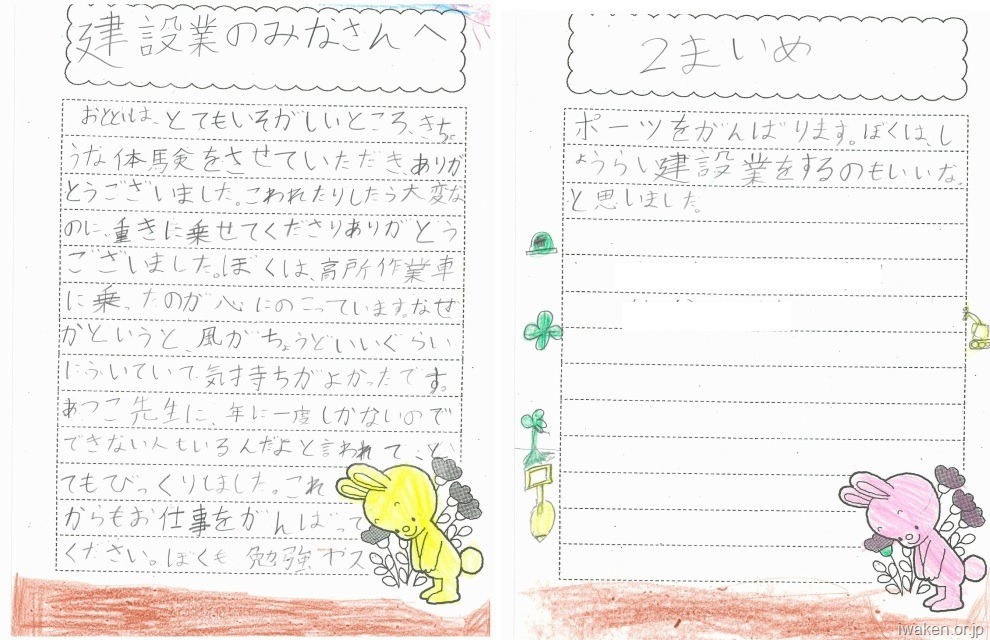 建設業のみなさんへ
おとといは、とてもいそがしいところ、きちょ
うな体験をさせていただき、ありが
とうございました。こわれたりしたら大変な
のに、重きに乗せてくださりありがとう
ございました。ぼくは、高所作業車
に乗ったのが心にのこっています。なぜ
かというと、風がちょうどいいぐらい
にふいていて気持ちがよかったです。
あつこ先生に、年に一度しかないので
できない人もいるんだよと言われて、と
てもびっくりしました。これ
からもお仕事をがんばって
ください。ぼくも勉強やス
2まいめ
ポーツをがんばります。ぼくは、し
ょうらい建設業をするのもいいな。
と思いました。
iwaken.or.jp